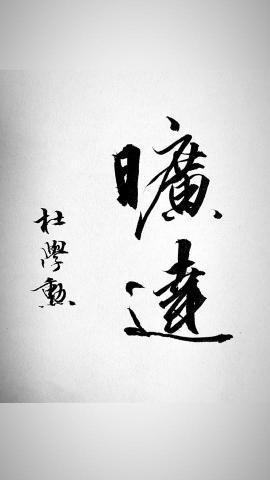 曠達
杜學勳